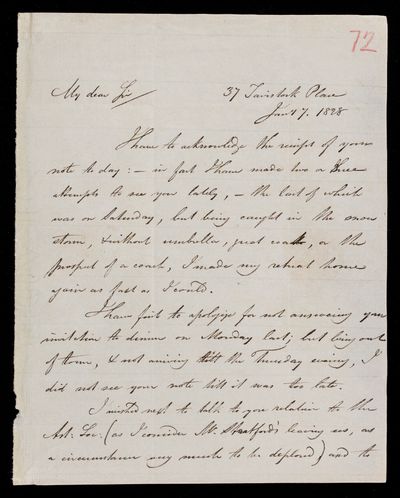 72
My dear Sir
37 Tavistock Place
Jany 7. 1828
I have to acknowledge the receipt of your
note to day : — in fact I have made two or three
attempts to see you lately, — the last of which
was on Saturday, but being caught in the snow
storm, & without umbrella, great coat, or the
prospect of a coach, I made my retreat home
again as fast as I could.
I have first to apologize for not answering your
invitation to dinner on Monday last; but being out
of town, & not arriving till the Tuesday evening, I
did not see your note till it was too late.
I wished next to talk to you relative to the
Ast. Soc. (as I consider Mr. Stratford's leaving us, as
a circumstance very much to be deplored) and to